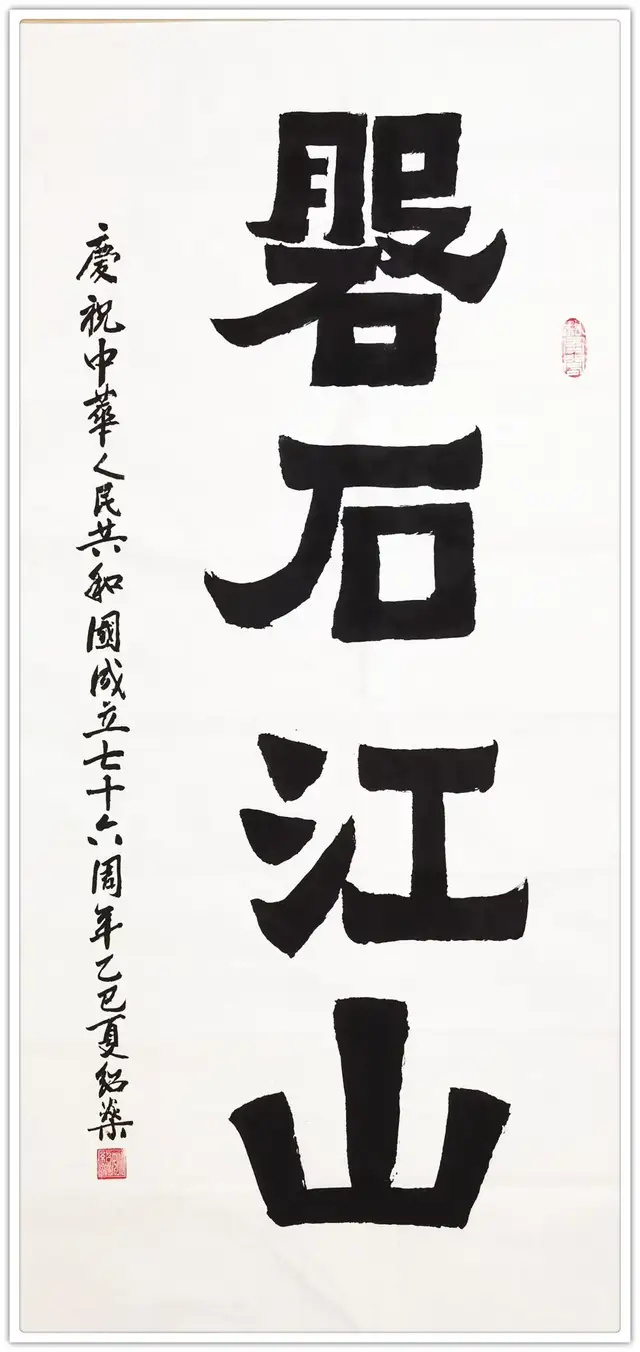 磐石江山
慶祝中華人民共和國成立七十六周年乙巳夏紹燊